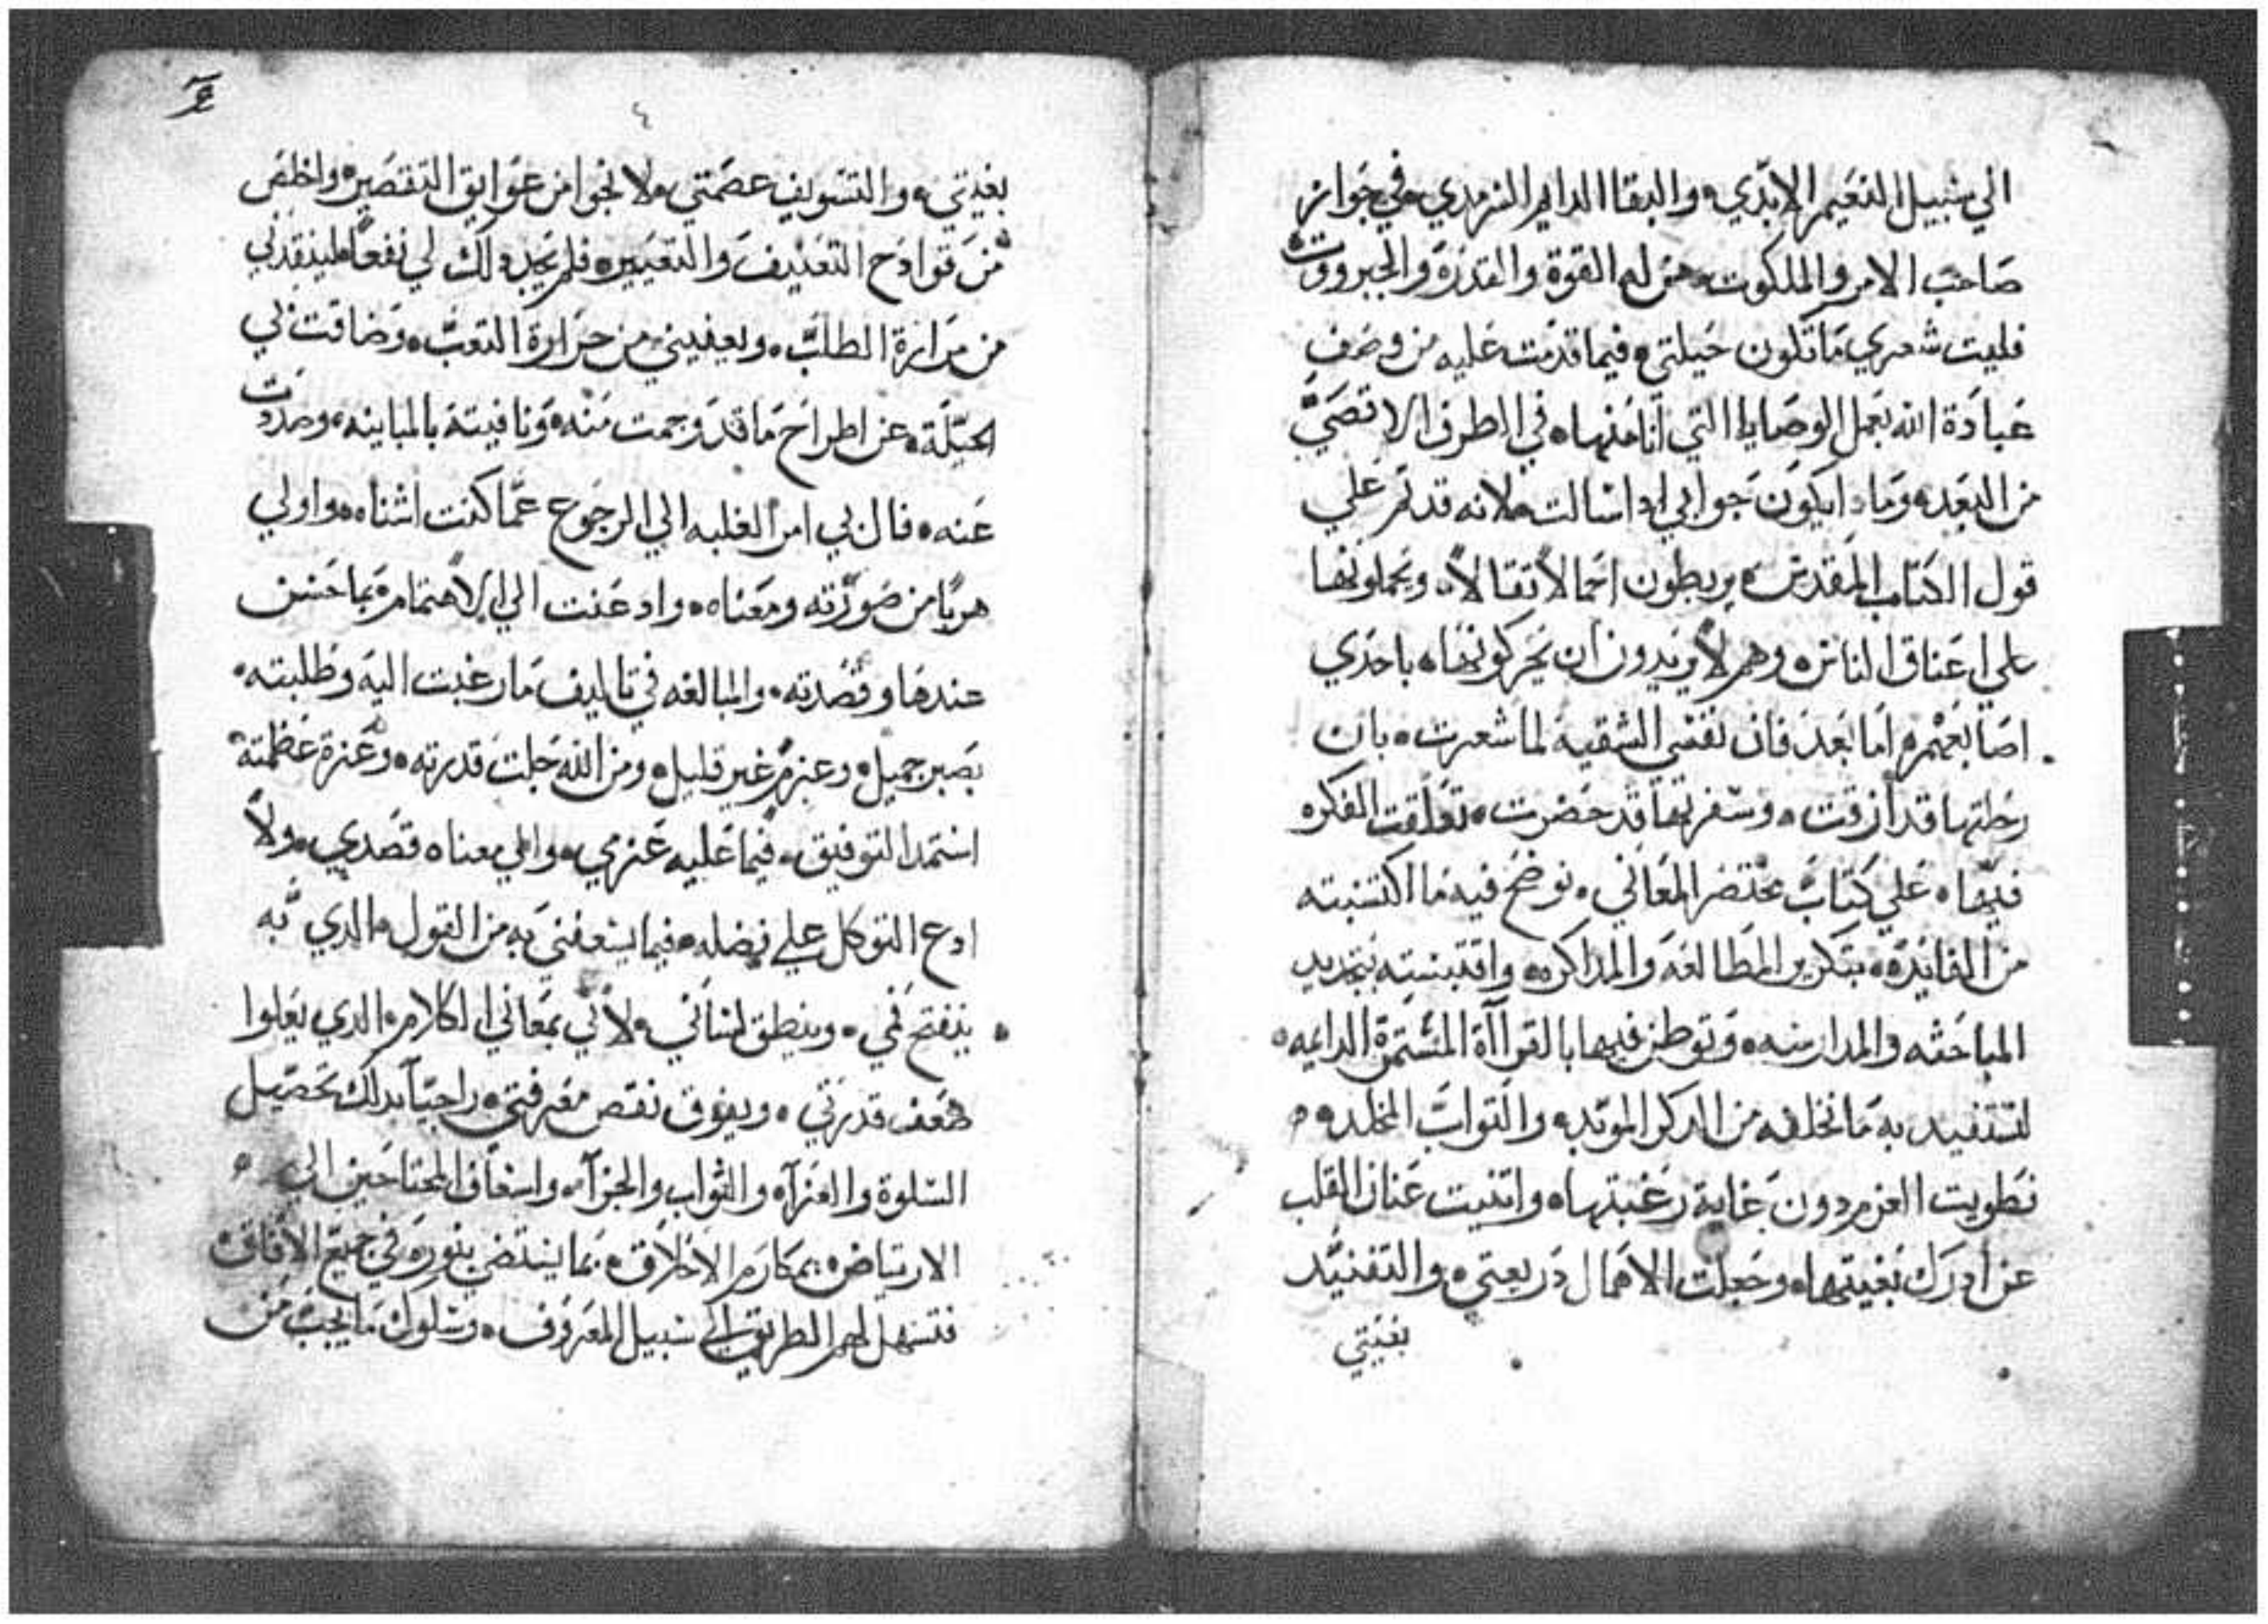 الي سبيل النعيم الابدي والبقا الدايم السرمدي في جوار
صاحب الامر والملكوت من له القوة والقدرة والجبروت
فليت شعري ما تكون حيلتي فيما قدمت عليه من وصف
عبادة الله بعمل الوصايا التي انا منها في الطرف الاقصي
من البعد وماذا يكون جوابي اذا سالت لانه قد تم علي
قول الكتاب المقدس يربطون احمالا تقالا ويحملونها
علي اعناق الناس وهم لا يريدون ان يحركونها باحدي
اصابعهم اما بعد فان نفسي الشقيه لما شعرت بان
رحلتها قد ازفت وسفرتها قد حضرت توافقت الفكره
فيها علي كتاب مختصر المعاني نوضح فيه ما اكتسبته
من الفايدة بتكرير المطالعة والمداكره واقتبسته بتجريد
المباحثه والمدارسه وتوطن فيها بالقراآة المستمرة الدايمه
لتستفيد به ما تخلفه من الدكر الموبد والتواب المخلد
فطويت العزم دون غاية رغبتها واتنيت عنان القلب
عن ادرك بغيتها وجعلت الاهمال دريعتي والتفنيد
بغيتي
٤
بغيتي والتسويف عصمتي ولا نجوا من عوايق التقصير واخلص
من قوادح التعنيف والتعيير فلم يجد دلك لي نفعا لينقدني
من مرارة الطلب ويعفيني من حرارة التعب وضاقت لي
الحيلة عن اطراح ما قد وجمت منه ونافيته بالمباينه وصددت
عنه فال بي امر الغلبه الي الرجوع عما كنت اشناه واولي
هربا من صورته ومعناه وادعنت الي الاهتمام بما حسن
عندها وقصدته والمبالغه في تاليف ما رغبت اليه وطلبته
بصبر جميل وعزم غير قليل ومن الله جلت قدرته وعزة عظمته
استمد التوفيق فيما عليه عزمي والي معناه قصدي ولا
ادع التوكل علي فضله فيما يسعفني به من القول الدي به
ينفتح فمي وينطق لساني لاني بمعاني الكلام الدي يعلوا
ضعف قدرتي ويفوق نقص معرفتي راجيا بدلك تحصيل
السلوة والعزآء والثواب والجزآء واسعاف المحتاجين الي
الارتياض بمكارم الاخلاق بما يستضي بنوره في جميع الافاق
فتسهل لهم الطريق الي سبيل المعروف وسلوك ما يجب من